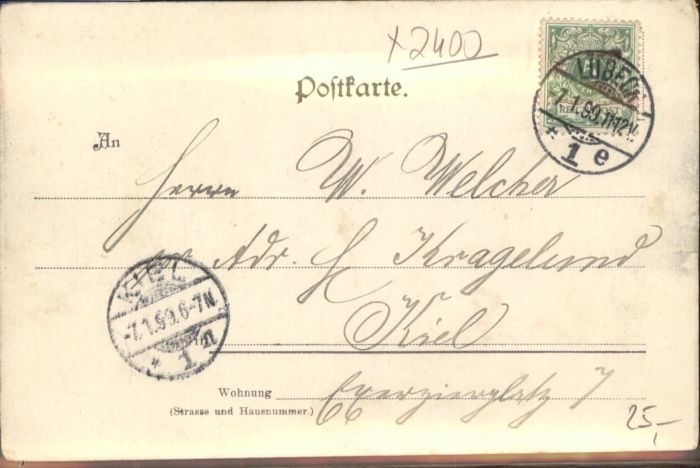 x 2400
Postkarte.
LÜBECK
7.1.99.11-12V.
* 1 e
REICHSPOST
An
Herrn W. Welcher
Adr. H Kragelund
Kiel
KIEL
-7.1.99.6-7N.
* 1 n
Wohnung Exerzierplatz 7
(Strasse und Hausnummer.)
25,-